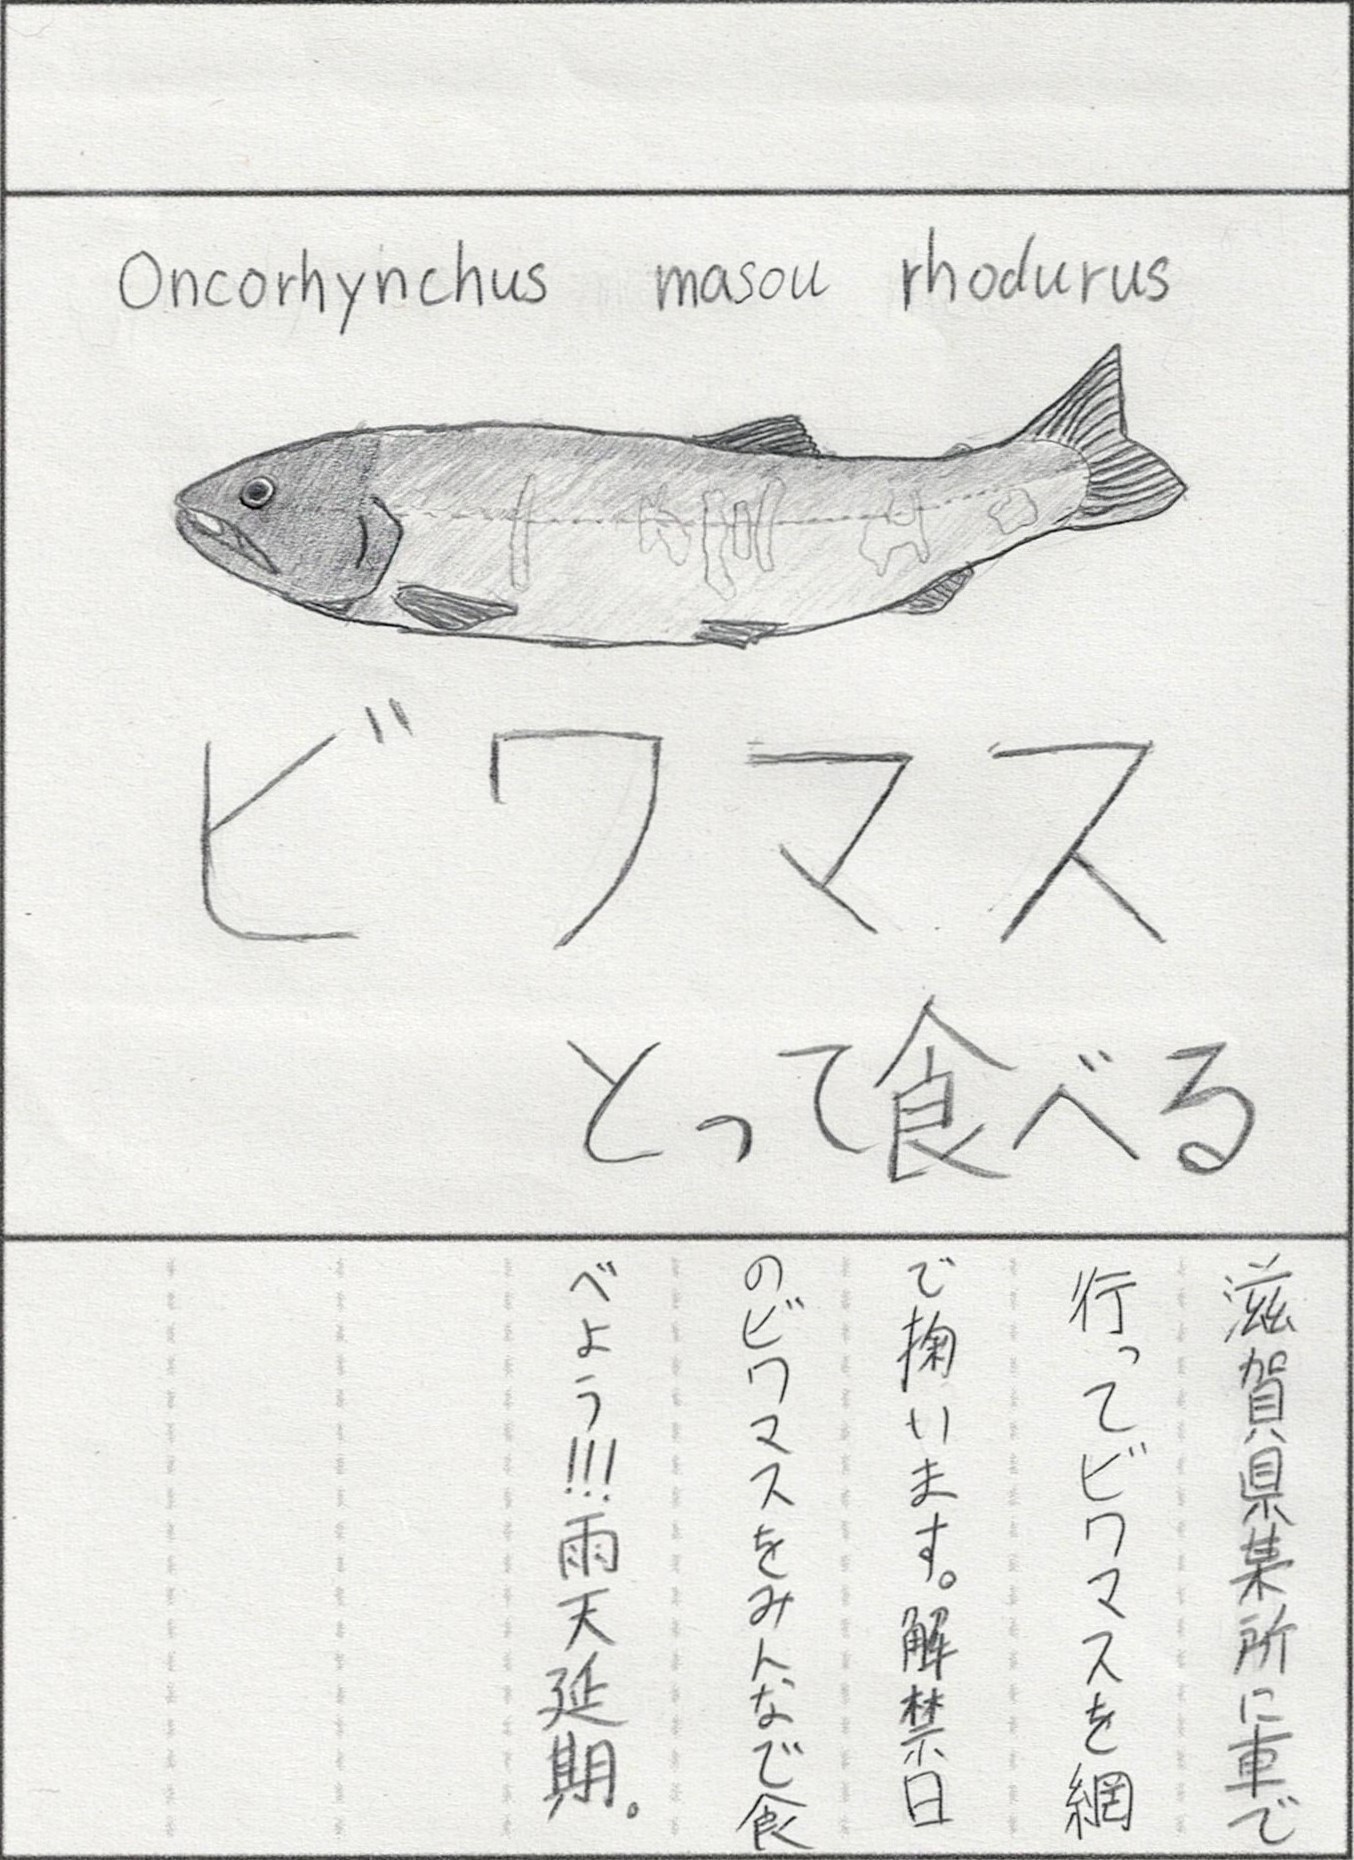 Oncorhynchus masou rhodurus
ビワマス
とって食べる
滋賀県某所に車で
行ってビワマスを網
で掬います。解禁日
のビワマスをみんなで食
べよう!!!雨天延期。